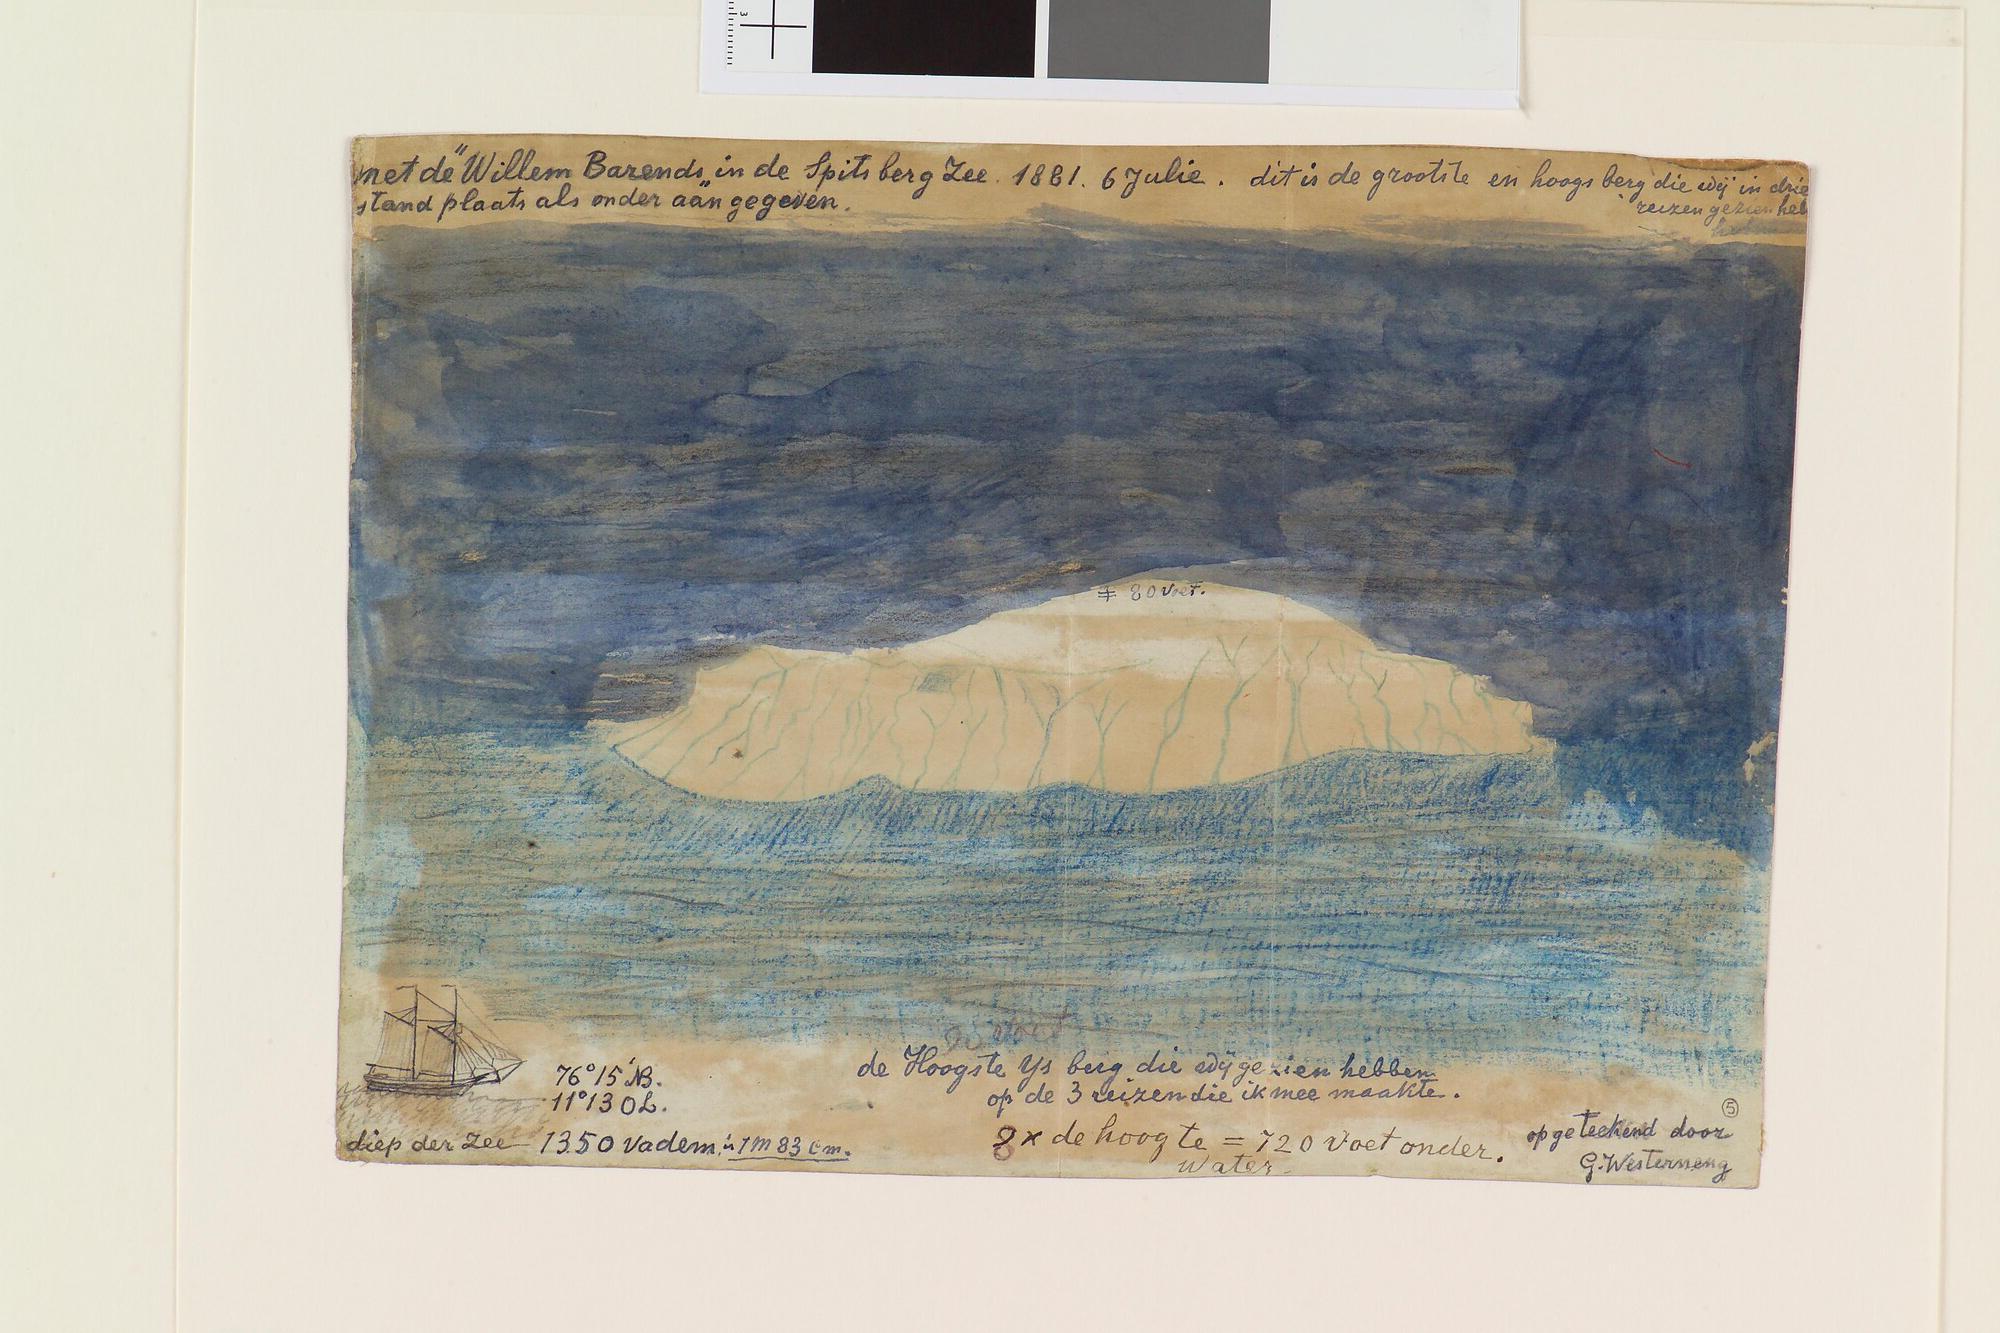 met de "Willem Barends" in de Spitsberg Zee. 1881. 6 Julie. dit is de grootste en hoogs berg die wij in drie
reizen gezien heb
stand plaats als onder aangegeven.
± 80 voet.
de Hoogste ys berg die wij gezien hebben
op de 3 reizen die ik mee maakte.
76°15' NB.
11°13 OL.
diep der Zee 1350 vadem. à 1 m 83 cm.
8 x de hoogte = 720 voet onder.
water.
5
opgeteekend door
G. Westerneng